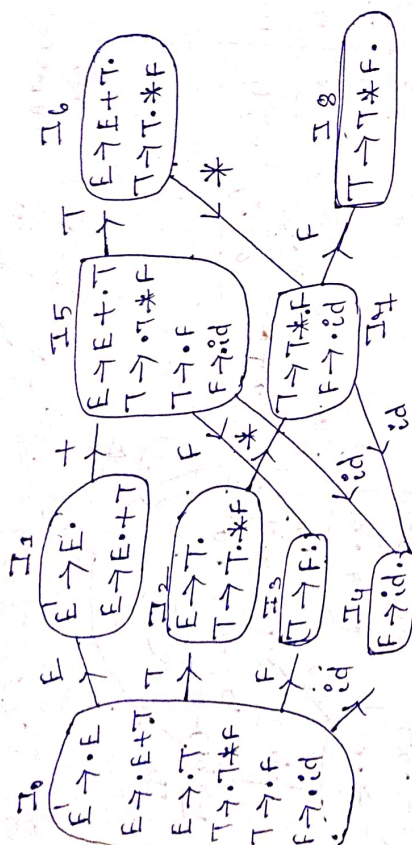 I₀
E' → . E
E → . E + T
E → . T
T → . T * F
T → . F
F → . id
E
T
F
id
I₁
E' → E .
E → E . + T
I₂
E → T .
T → T . * F
I₃
T → F .
I₄
F → id .
+
F
*
id
id
I₅
E → E + . T
T → . T * F
T → . F
F → . id
I₇
T → T * . F
F → . id
T
*
F
I₆
E → E + T .
T → T . * F
I₈
T → T * F .